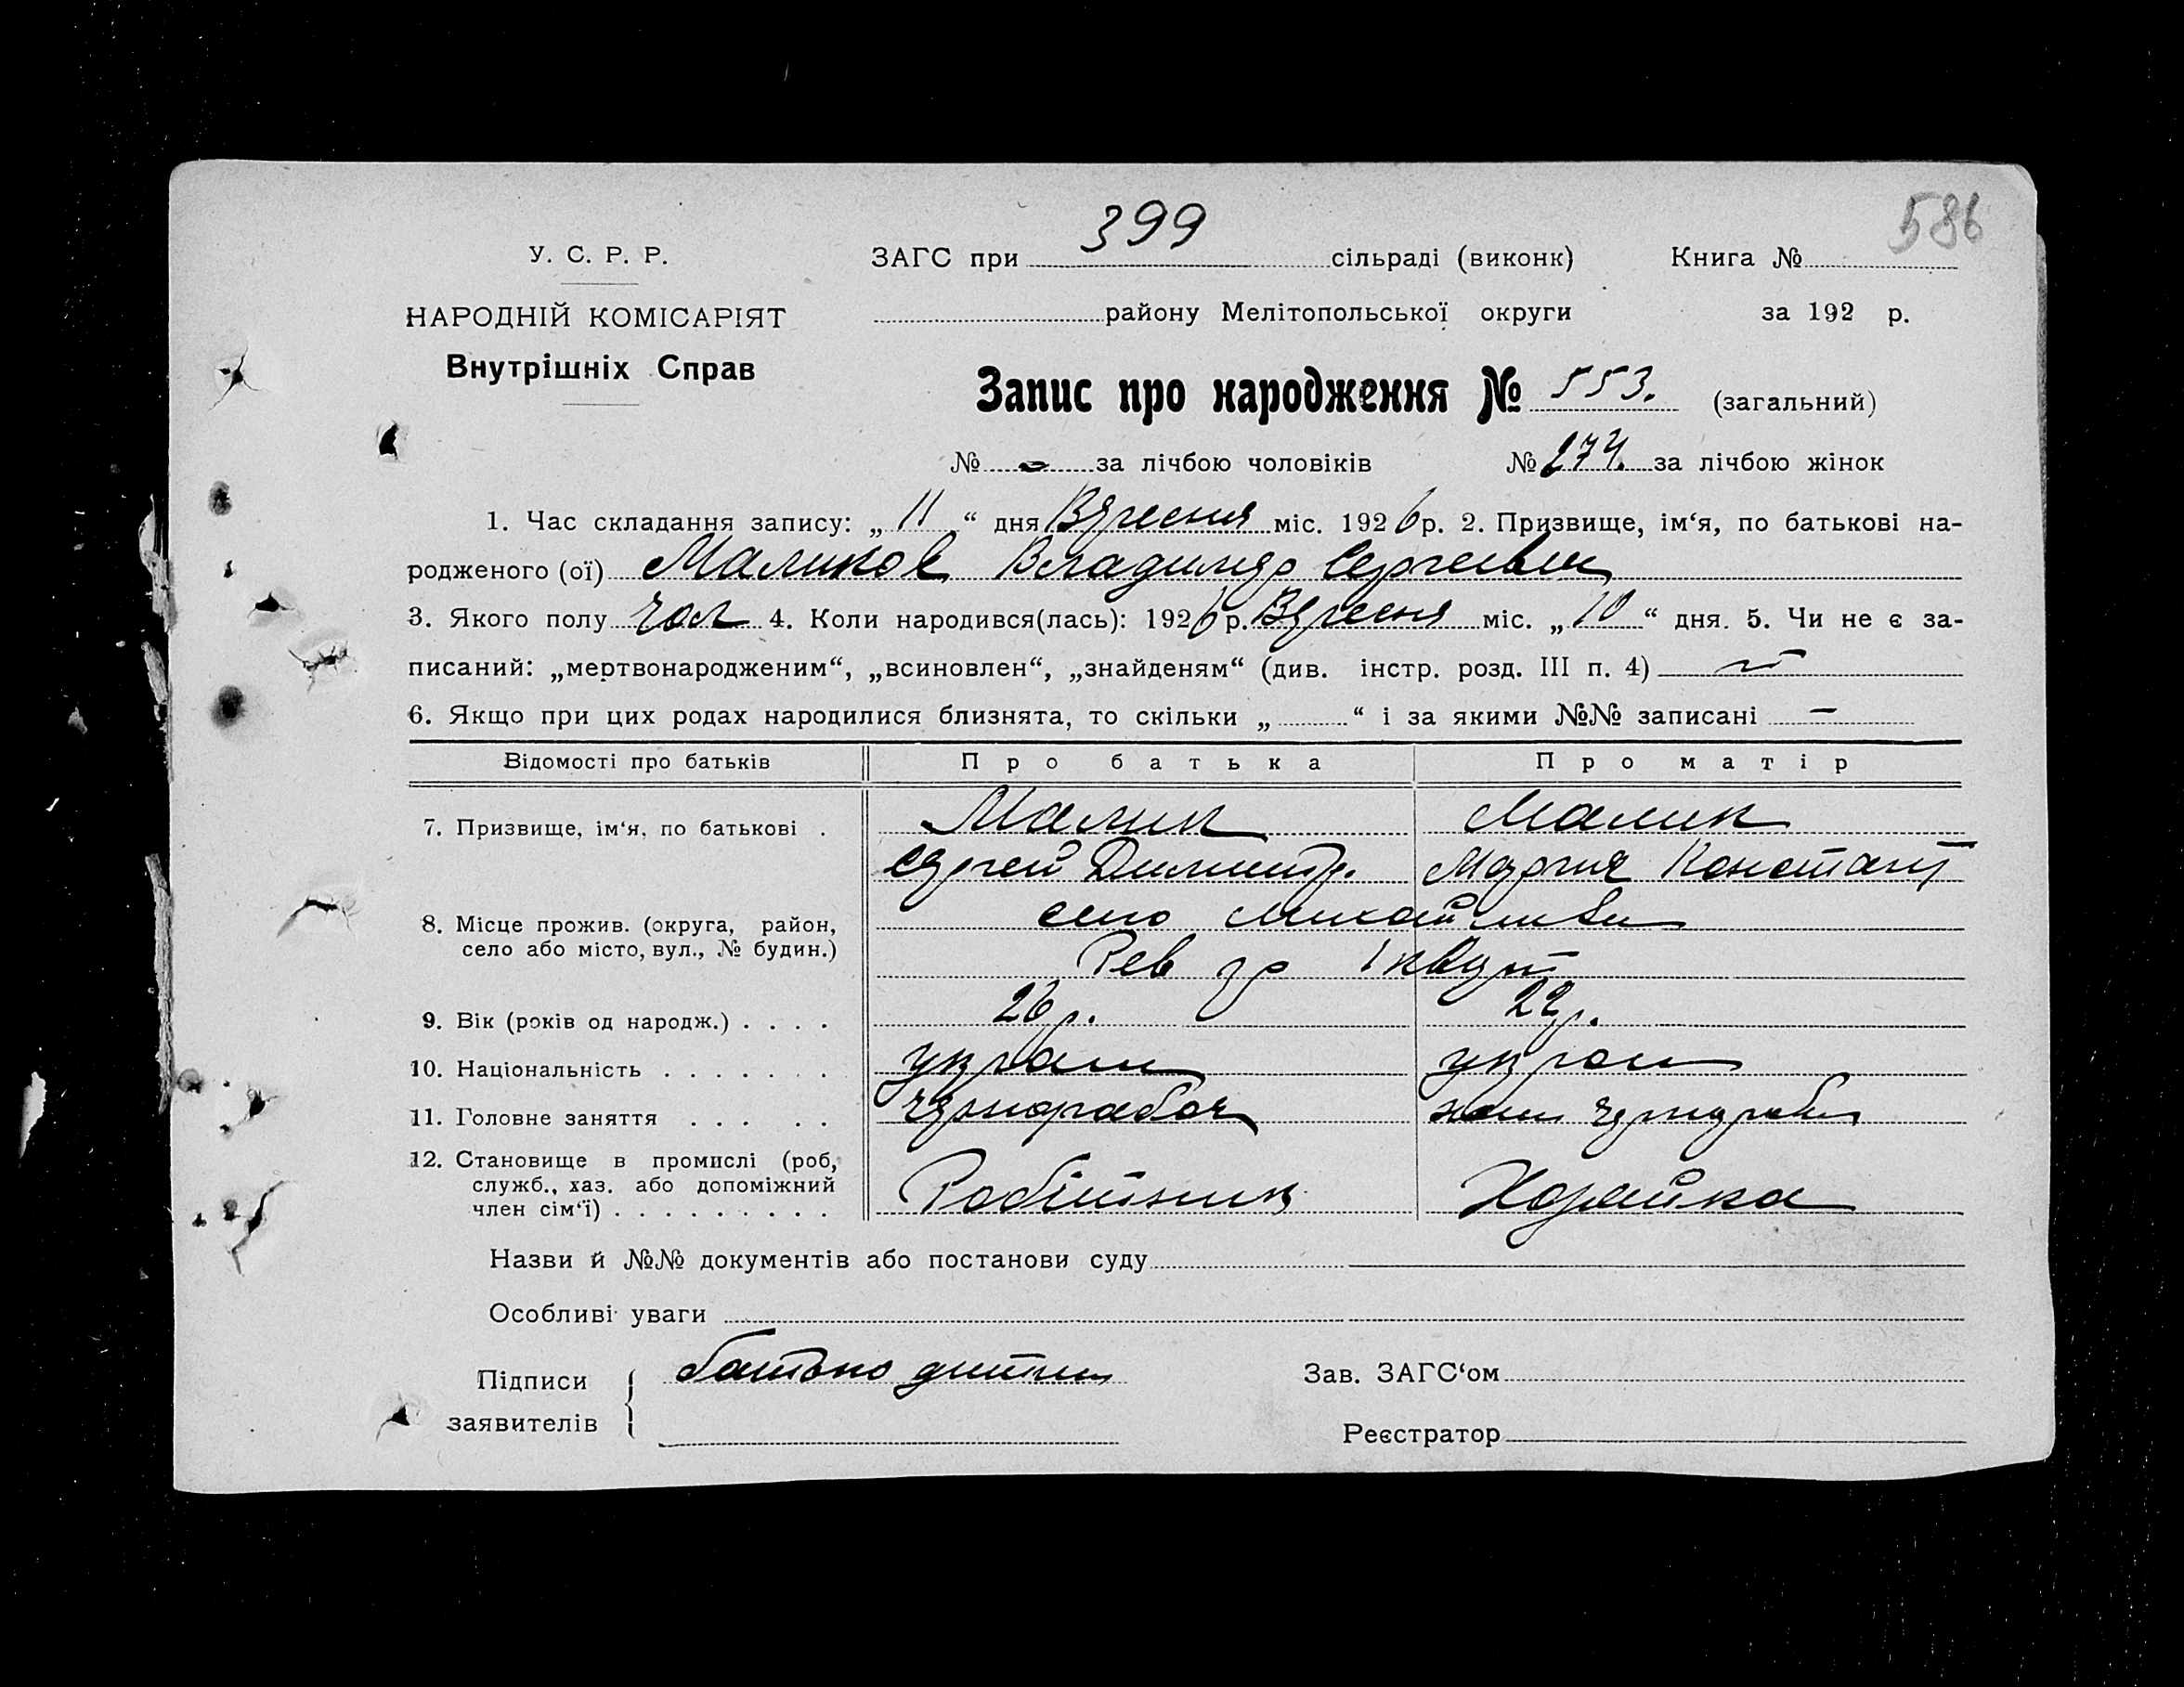 399
586
У. С. Р. Р.
ЗАГС при сільраді (виконк) Книга №
НАРОДНІЙ КОМІСАРІЯТ
району Мелітопольської округи за 192 р.
Внутрішніх Справ
Запис про народження № 553. (загальний)
№ за лічбою чоловіків № 274. за лічбою жінок
1. Час складання запису: „ 11 “ дня Вересня міс. 1926 р. 2. Призвище, ім‘я, по батькові на-
родженого (ої) Маликов Владимер Сергеевич
3. Якого полу чол 4. Коли народився(лась): 1926 р. Вересня міс. „ 10 “ дня. 5. Чи не є за-
писаний: „мертвонародженим“, „всиновлен“, „знайденям“ (див. інстр. розд. III п. 4)
6. Якщо при цих родах народилися близнята, то скільки „ “ і за якими №№ записані —
Відомості про батьків Про батька Про матір
7. Призвище, ім‘я, по батькові . Малик Малик
Сергей Димитр. Мария Констант
8. Місце прожив. (округа, район, село
село або місто, вул., № будин.) Рев
9. Вік (років од народж.) . . . . 26 р. 22 р.
10. Національність . . . . . . . украин украин
11. Головне заняття . . . . . чернорабоч
12. Становище в промислі (роб,
служб., хаз. або допоміжний Робітник Хозяйка
член сім‘ї) . . . . . . . . .
Назви й №№ документів або постанови суду
Особливі уваги
Підписи батько дитини Зав. ЗАГС‘ом
заявителів
Реєстратор